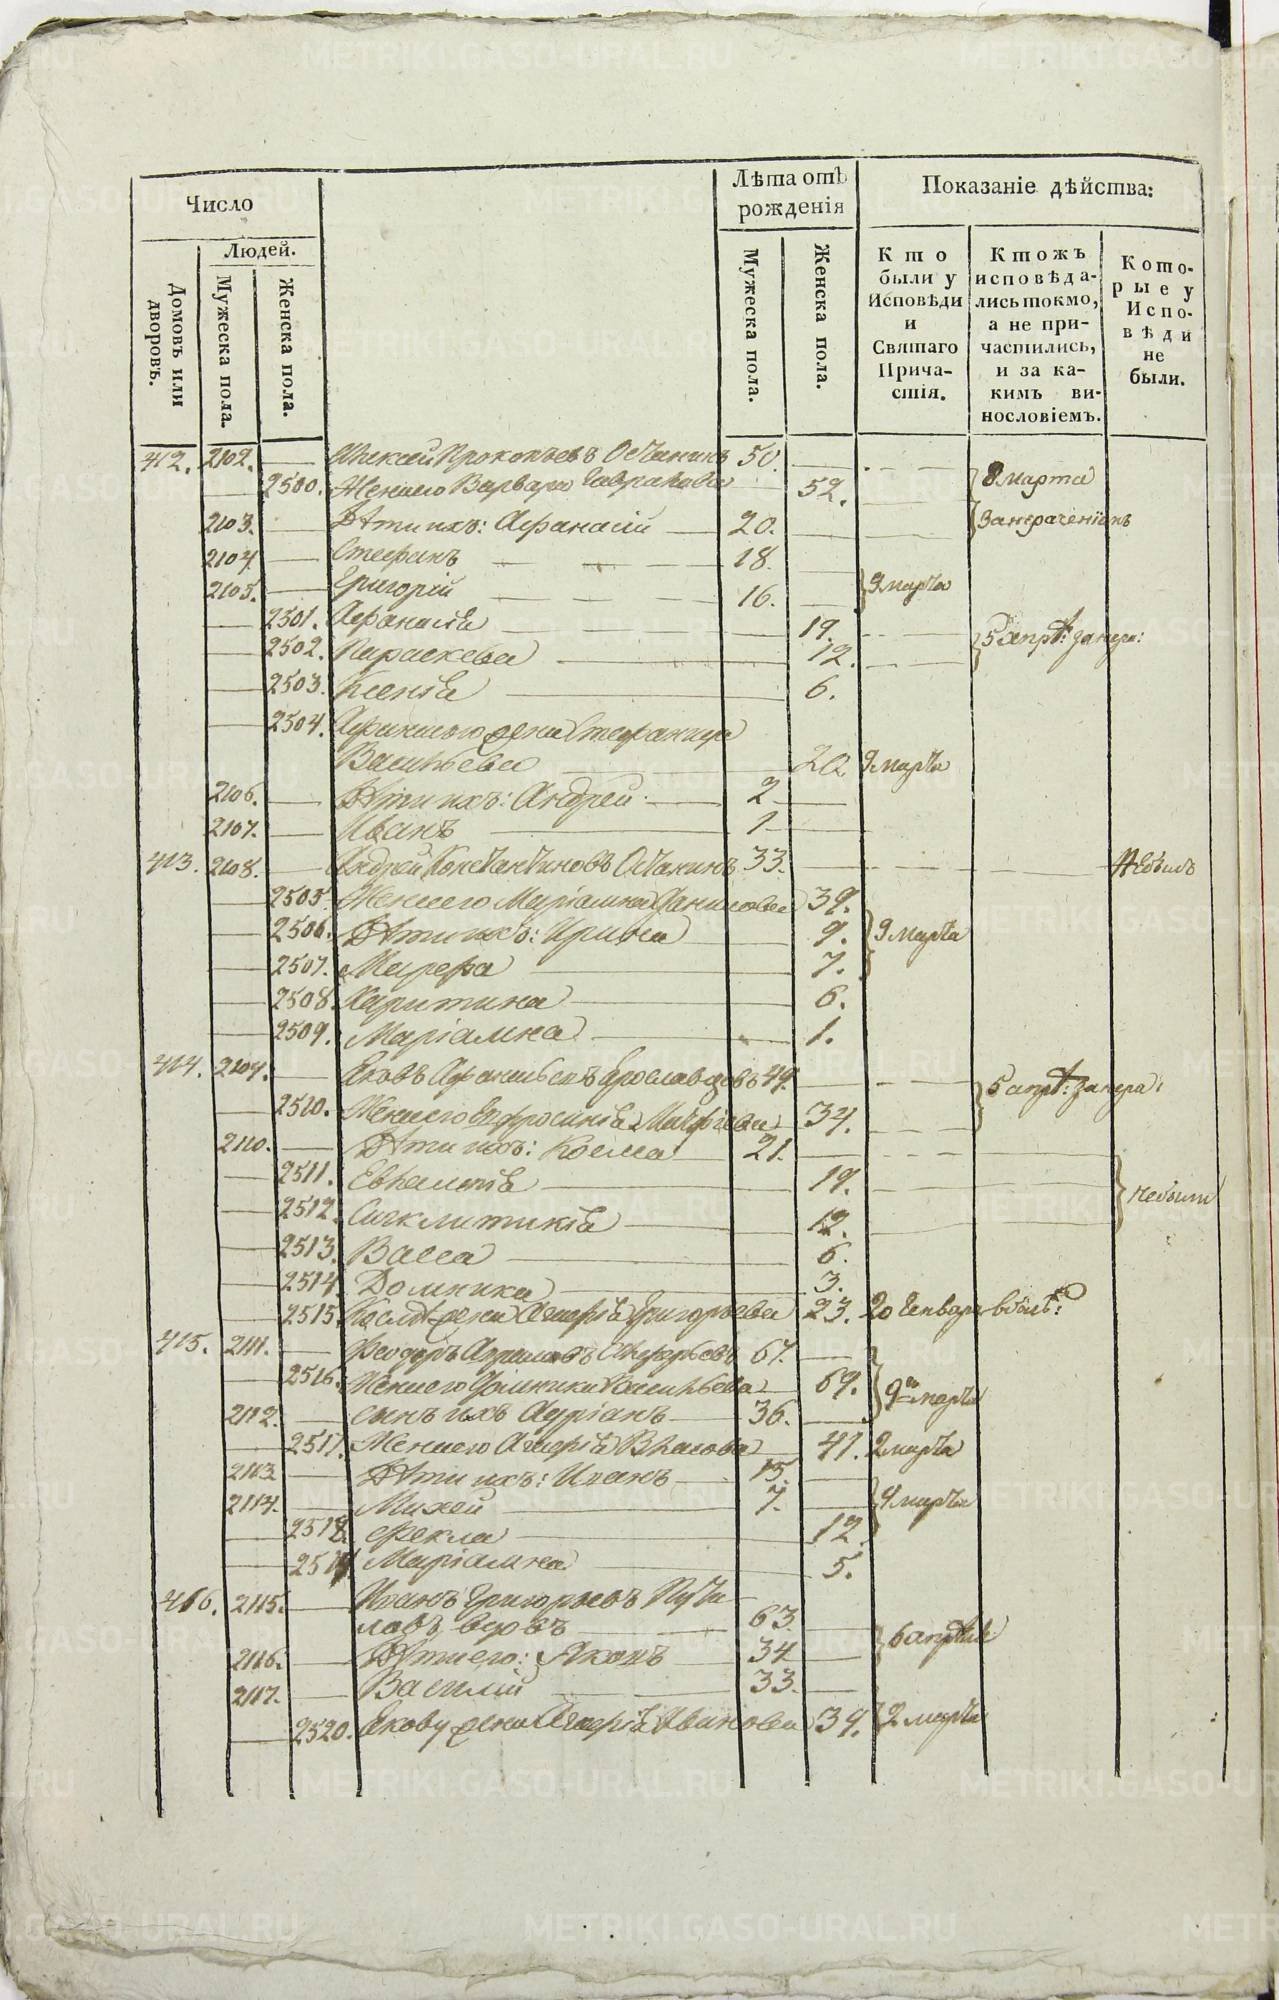 Число
Людей.
Домовъ или дворовъ.
Мужеска пола.
Женска пола.
Лѣта отъ рожденія
Мужеска пола.
Женска пола.
Показаніе дѣйства:
Кто были у Исповѣди и Святаго Причастія.
Ктожъ исповѣдались токмо, а не причастились, и за какимъ винословіемъ.
Которые у Исповѣди не были.
412. 2102. Алексей Прокопьевъ 50.
2500. Жена его Варвара 52. 8 марта
2103. Дѣти ихъ: Афанасій 20.
2104. Стефанъ 18.
2105. Григорій 16. 9 марта
2501. Афанасія 19.
2502. Параскева 12. 5 апр:
2503. Ксенія 6.
2504. жена Стефанида
Васильева 20 9 марта
2106. Дѣти ихъ: Андрей 2
2107. Иванъ 1
413. 2108. Андрей Константиновъ 33. Небылъ
2505. Жена его Маріамна 39.
2506. Дѣти ихъ: Ирина 9. 9 марта
2507. Марфа 7.
2508. Харитина 6.
2509. Маріамна 1.
414. 2109. Яковъ 49. 5 апр:
2510. Жена его Ефросинія 34.
2110. Дѣти ихъ: Косма 21.
2511. Евлампія 19. небыли
2512. Сигклитикія 12.
2513. Васса 6.
2514. Домника 3.
2515. жена Григорьева 23. 20 Генваря
415. 2111. Феодоръ 67.
2516. Жена его Домника Васильева 69. 9 марта
2112. сынъ ихъ Адріанъ 36.
2517. Жена его Власова 41. 2 марта
2113 Дѣти ихъ: Иванъ 15.
2114. Михей 7. 4 марта
2518. Фекла 12
2519 Маріамна 5.
416. 2115. Иванъ Григорьевъ Пути-
ловъ, вдовъ 63. 6 апрѣля
2116. Дѣти его: Яковъ 34
2117. Василій 33.
2520. Якову жена Иванова 34. 2 марта
METRIKI.GASO-URAL.RU